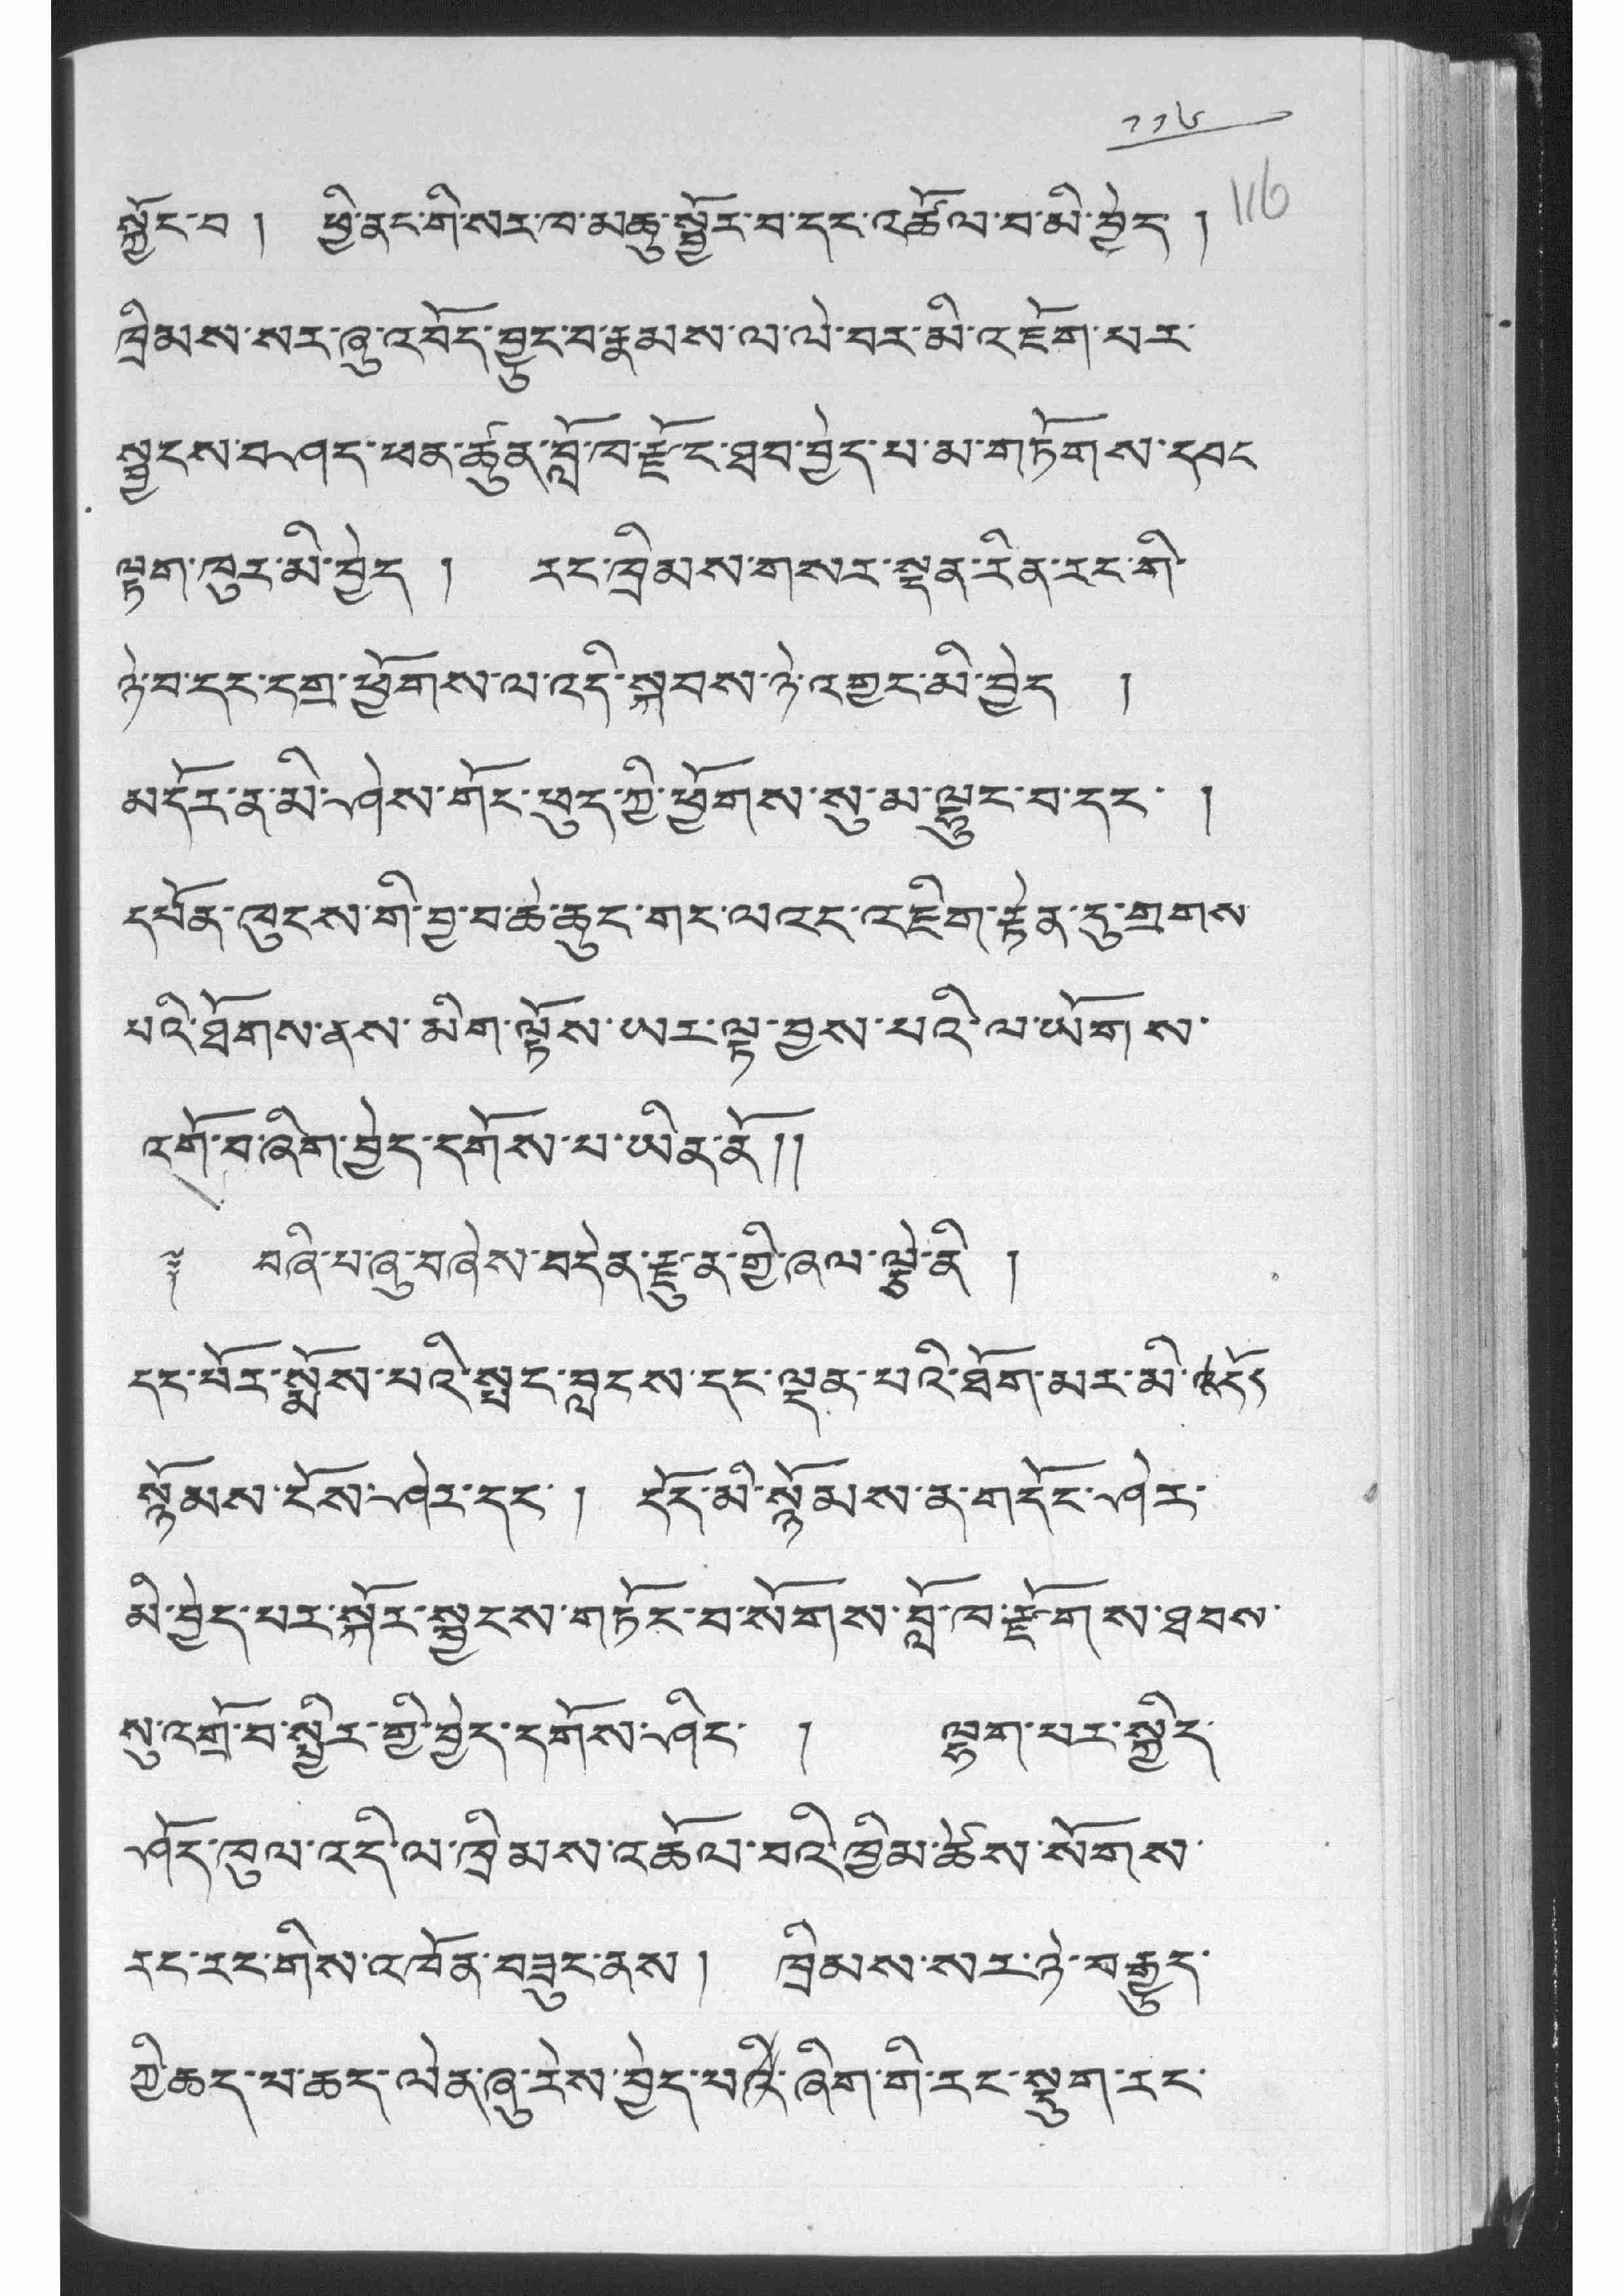 ༡༡༦
116
སྐྱོང་བ། ཕྱི་ནང་གི་སར་ཁ་མཆུ་སྦྱོར་བ་དང་འཚོལ་བ་མི་བྱེད།
ཁྲིམས་སར་ཞུ་འབོད་བྱུང་བ་རྣམས་ལ་ལེ་བར་མི་འཇོག་པར་
སྦྱངས་བཤད་ཕན་ཚུན་བློ་ཁ་རྫོང་ཐབ་བྱེད་པ་མ་གཏོགས་དབང
ལྟག་ཁུར་མི་བྱེད། རང་ཁྲིམས་གསར་སྡན་རིན་རང་གི་
ཉེ་བ་དང་དགྲ་ཕྱོགས་ལ་འདི་སྐབས་ཉེ་འགྱང་མི་བྱེད།
མདོར་ན་མི་ཤེས་གོང་ཕུད་ཀྱི་ཕྱོགས་སུ་མ་ལྷུང་བ་དང་།
དཔོན་ཁུངས་གི་བྱ་བ་ཆེ་ཆུང་གང་ལའང་འཇིག་རྟེན་དུ་གྲགས
པའི་ཐོགས་ནས་མིག་ལྟོས་ཡར་ལྟ་བྱས་པའི་ལ་ཡོགས་
འགོ་བ་ཞིག་བྱེད་དགོས་པ་ཡིན་ནོ།།
༈ བཞི་པ་ཞུ་བཞེས་བདེན་རྫུན་གྱི་ཞལ་ལྕེ་ནི།
དང་པོར་སྨོས་པའི་སྤང་བླངས་དང་ལྡན་པའི་ཐོག་མར་མི་དོད
སྙོམས་ངོས་ཤེར་དང་། དོད་མི་སྙོམས་ན་གདོང་ཤེར་
མི་བྱེད་པར་སྐོར་སྦྱངས་གཏོང་བ་སོགས་བློ་ཁ་རྫོགས་ཐབས་
སུ་འགྲོ་བ་སྤྱིར་གྱི་བྱེད་དགོས་ཤིང་། ལྷག་པར་སྐྱིད་
ཤོད་ཁུལ་འདི་ལ་ཁྲིམས་འཆོལ་བའི་ཁྱིམ་ཚེས་སོགས་
རང་རང་གིས་འཁོན་བཟུང་ནས། ཁྲིམས་སར་ཉེ་བརྒྱུད་
ཀྱི་ཆད་པ་ཆད་ལེན་ཞུ་རེས་བྱེད་པའི་ཞིག་གི་རང་སྡུག་རང་